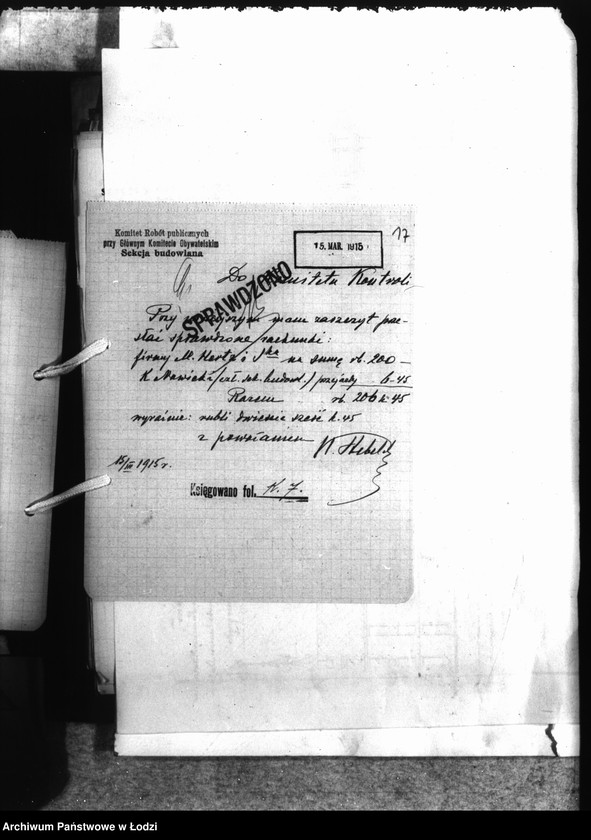 17
Komitet Robót publicznych
przy Głównym Komitecie Obywatelskim
Sekcja budowlana
15. MAR. 1915
Do Komitetu Kontroli
SPRAWDZONO
Przy niniejszym mam zaszczyt prze-
słać sprawdzone rachunki:
firmy M. Hertz i Ska na sumę rb. 200 —
K. Nowicki (czł. sek. budowl.) przejazdy 6-45
Razem rb. 206 k. 45
wyraźnie: rubli dwieście sześć k. 45
z poważaniem
15/III 1915 r.
Księgowano fol. K. 7.
Archiwum Państwowe w Łodzi